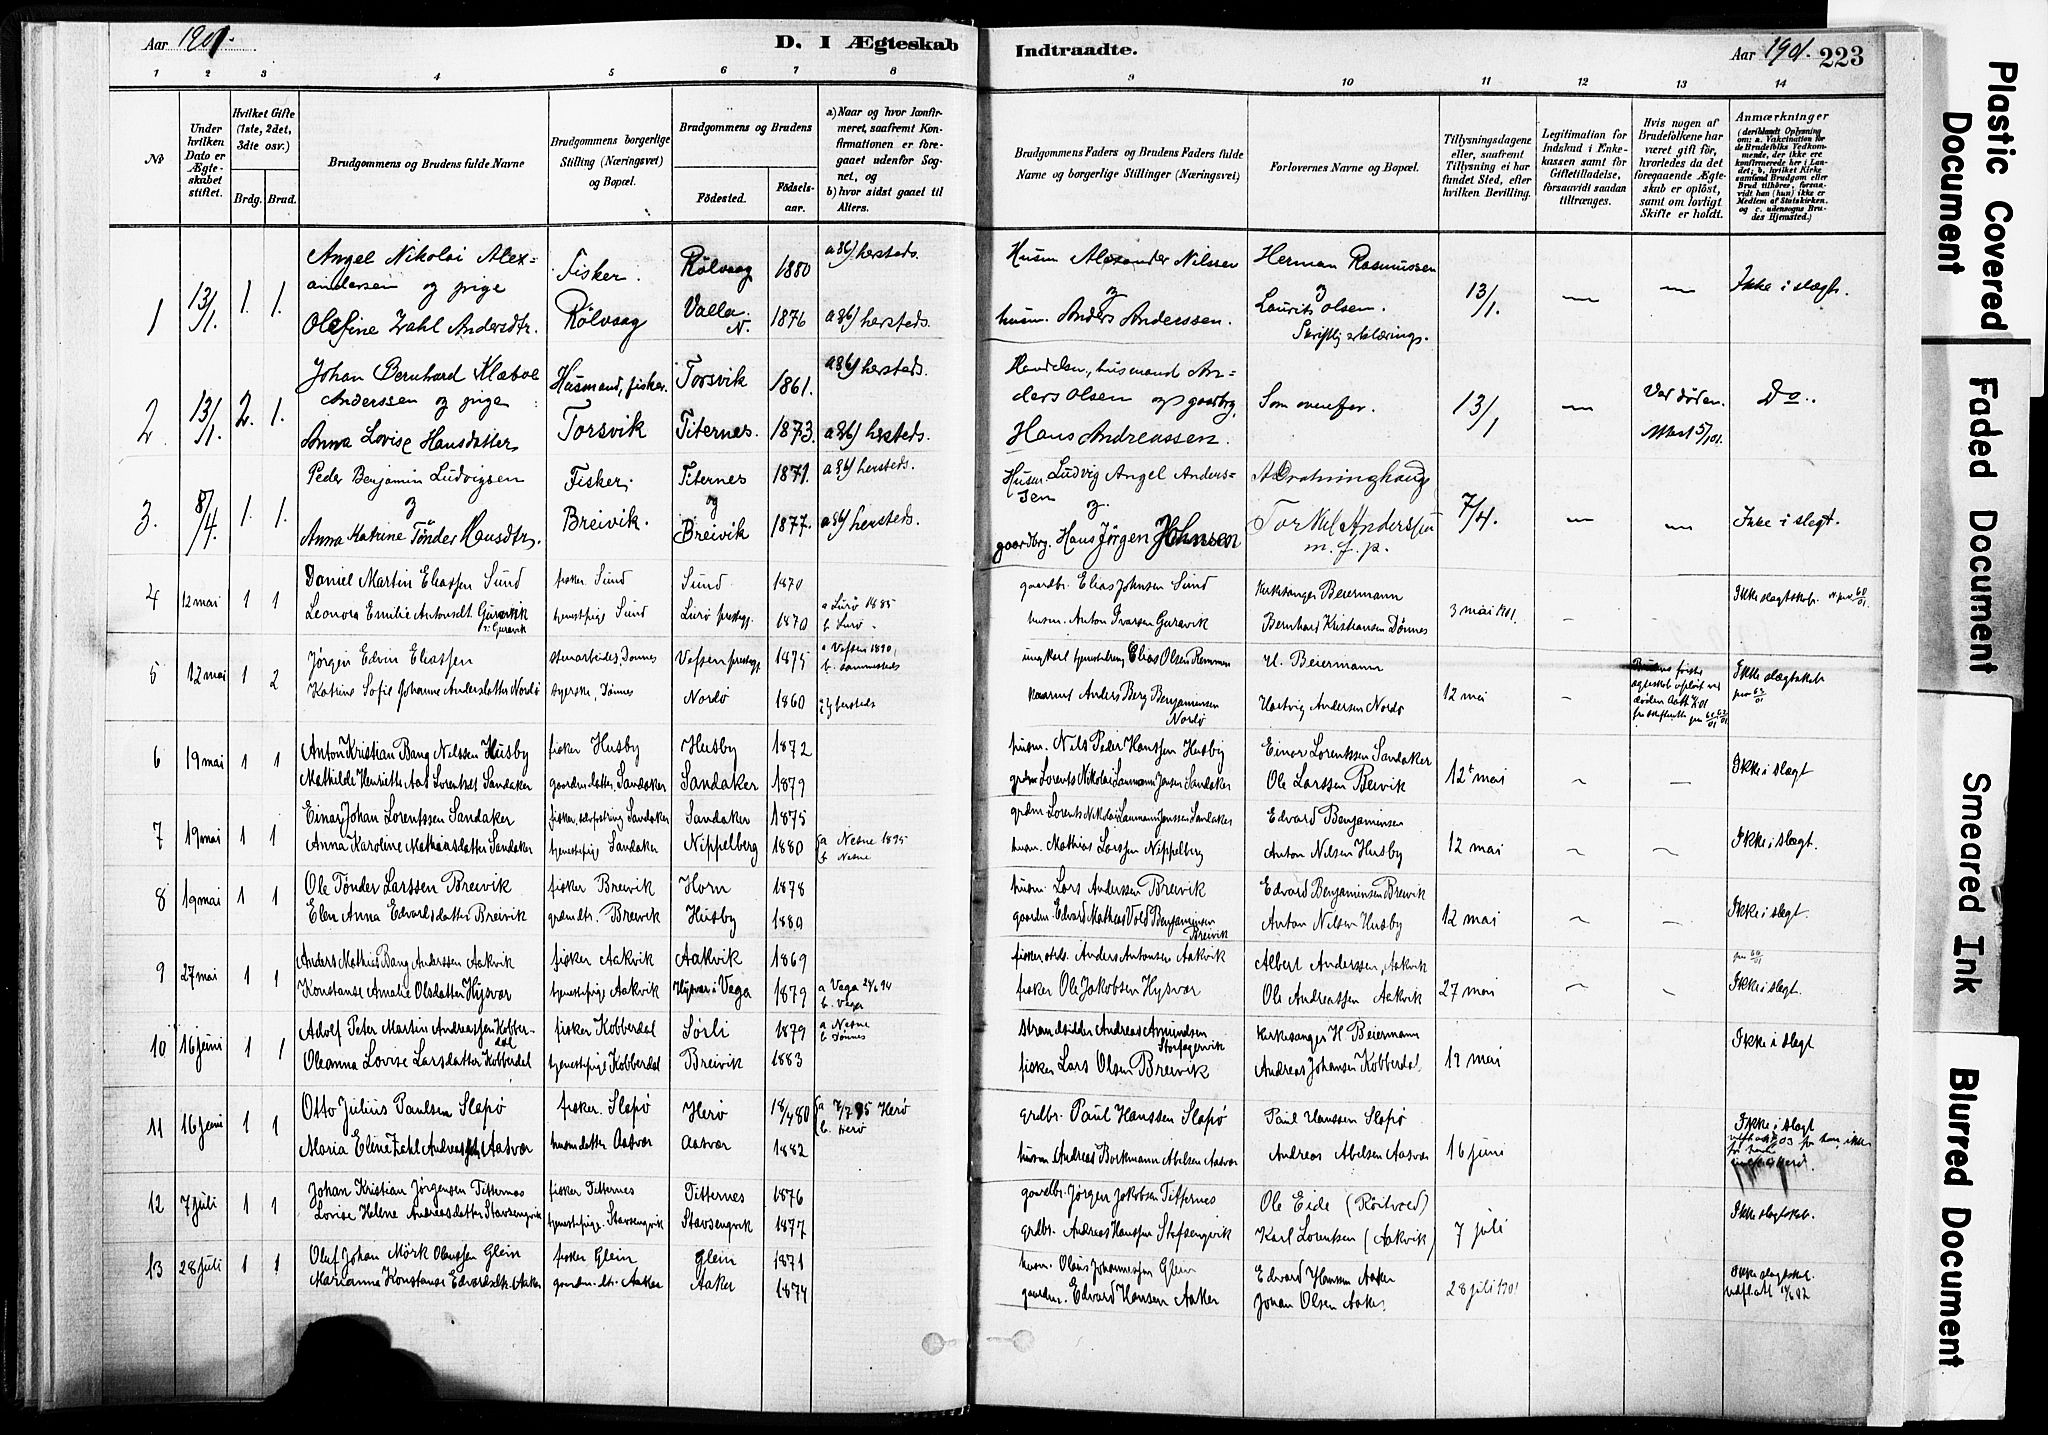 Aar 1901. D. I Ægteskab
Indtraadte. Aar 1901. 223
1 2 3 4 5 6 7 8
9 10 11 12 13 14
№
Under hvilken Dato er Ægteskabet stiftet.
Hvilket Gifte (1ste, 2det, 3die osv.)
Brdg. Brud.
Brudgommens og Brudens fulde Navne
Brudgommens borgerlige Stilling (Næringsvei) og Bopæl.
Brudgommens og Brudens
Födested. Födsels-aar.
a) Naar og hvor konfirmeret, saafremt Konfirmationen er foregaaet udenfor Sognet, og
b) hvor sidst gaaet til Alters.
Brudgommens Faders og Brudens Faders fulde Navne og borgerlige Stillinger (Næringsvei)
Forlovernes Navne og Bopæl.
Tillysningsdagene eller, saafremt Tillysning ei har fundet Sted, efter hvilken Bevilling.
Legitimation for Indskud i Enkekassen samt for Giftetilladelse, forsaavidt saadan tiltrænges.
Hvis nogen af Brudefolkene har været gift før, hvorledes da det foregaaende Ægteskab er oplöst, samt om lovligt Skifte er holdt.
Anmærkninger
1 13/1. 1. 1.
Angel Nikolai Alex=
andersen og pige
Olefine Zahl Andersdtr.
Fisker.
Rölvaag
Rölvaag 1880
Valla. N. 1876
a86) hersteds.
a86) hersteds.
Husm Alexander Nilssen
og
husm. Anders Anderssen.
Herman Rasmussen
og
Laurits Olsen.
Skriftlig erklærings.
13/1. — — Ikke i slægt.
2. 13/1. 2. 1.
Johan Bernhard Klæboe
Anderssen og pige
Anna Lovise Hansdatter
Husmand, fisker.
Torsvik
Torsvik 1861.
Titernes. 1873.
a86) hersteds.
a86) hersteds.
husmand An=
ders Olsen og gaardbrg.
Hans Andreassen.
Som ovenfor.
13/1 — Ved døden. Do.
3. 8/4. 1. 1.
Peder Benjamin Ludvigsen
og
Anna Katrine Tönder Hansdtr.
Fisker.
Breivik.
Titernes 1871.
og
Breivik 1877.
a86) hersteds.
a86) hersteds.
Husm Ludvig Angel Anders=
sen
og
gaardbrg. Hans Jørgen Johnsen
m. f. p.
7/4. — — Ikke i slegt.
4 12 mai 1 1
Daniel Martin Eliassen Sund
Leonora Emilie Antonsdt. Guravik
fisker Sund
tjenestpige Sund
Sund 1870
Lurø prestegj. 1870
a Lurø 1885
b. Lurø
gaardbr. Elias Johnsen Sund
husm. Anton Ivarsen Guravik
Kirkesanger Beiermann
Bernhard Kristiansen Dönnes
3 mai 1901. — —
5 12 mai 1 2
Jørgen Edvin Eliassen
Katrine Sofie Johanne Andersdatter Nordø
stenarbeider, Dønnes
syerske, Dønnes
Vefsen prestegj. 1875
Nordø 1860
a Vefsen 1890,
b. sammesteds
hersteds
Elias Olsen Remmen
Anders Berg Benjaminsen
Nordø
H. Beiermann
Hartvig Andersen Nordø
12 mai — Ikke slægtskab
6 19 mai 1 1
Anton Kristian Bang Nilssen Husby
Mathilde Henriette Aas Lorentsdt. Sandaker
fisker Husby
gaardmdatter Sandaker
Husby 1872
Sandaker 1879
husm. Nils Peder Hanssen Husby
Einar Lorentssen Sandaker
Ole Larssen Breivik
12te mai — — Ikke i slægt
7 19 mai 1 1
Einar Johan Lorentssen Sandaker
Anna Karoline Mathiasdatter Sandaker
tjenestepige Sandaker
Sandaker 1875
Nippelberg 1880
a Nesne 1895
b Nesne
husm. Mathias Larssen Nippelberg
Edvard Benjaminsen
Anton Nilsen Husby
12 mai — — Ikke i slægt.
8 19 mai 1 1
Ole Tönder Larssen Breivik
Elen Anna Edvardsdatter Breivik
fisker Breivik
grdmdtr. Breivik
Horn 1878
Husby 1880
husm. Lars Anderssen Breivik
gaardm. Edvard Mathias Vold Benjaminsen
Breivik
Edvard Benjaminsen Breivik
Anton Nilsen Husby
12 mai — — Ikke i slegt.
9 27 mai 1 1
Anders Mathias Bang Anderssen Aakvik
Konstanse Amalie Olsdatter Hysvær
fisker Aakvik
tjenestepige Aakvik
Aakvik 1869
Hysvær i Vega 1879
a Vega 24/6 94
b. Vega
Anders Antonsen Aakvik
fisker Ole Jakobsen Hysvær
Albert Anderssen, Aakvik
Ole Andreassen Aakvik
27 mai — — Ikke i slegt.
10 16 juni 1 1
Adolf Peter Martin Andreassen Kobber-
dal
Oleanna Lovise Larsdatter Kobberdal
fisker Kobberdal
tjenestepige Kobberdal
Sørli 1879
Breivik 1883
a Nesne
b Dønnes
strandsidder Andreas Amundsen
fisker Lars Olsen Breivik
Kirkesanger H Beiermann
Andreas Johansen Kobberdal
19 mai Ikke i slegt
11 16 juni 1 1
Otto Julius Paulsen Slapø
Maria Eline Zahl Andreasdtr. Aasvær
fisker. Slapø
husmdatter Aasvær
Herø 18/4 80
Aasvær 1882
a 7/7 95 Herø
b. Herø
grdbr. Paul Hanssen Slapø
husm Andreas Borkmann Abelsen Aasvær
Paul Hanssen Slapø
Andreas Abelsen Aasvær
16 juni Ikke i slegt
12 7 juli 1 1
Johan Kristian Jørgensen Titternes
Lovise Helene Andreasdatter Stavsengvik
fisker Titternes
tjenestepige Stavsengvik
Titternes 1876
Stavsengvik 1877
gaardbr. Jørgen Jakobsen Titternes
grdbr. Andreas Hanssen Stafsengvik
Ole Eide (Röitved)
Karl Lorentsen (Aakvik)
7 juli Ikke slegtskab.
13 28 juli 1 1
Oluf Johan Mörk Olaussen Glein
Marianna Konstanse Edvardsdtr. Aaker
fisker Glein
gaardm.dtr. Aaker
Glein 1871
Aaker 1874
husm. Olaus Johannessen Glein
gaardm. Edvard Hansen Aaker
Edvard Hansen Aaker
Johan Olsen Aaker
28 juli 1901 Ikke slegtskab.
Plastic Covered Document
Faded Document
Smeared Ink
Blurred Document